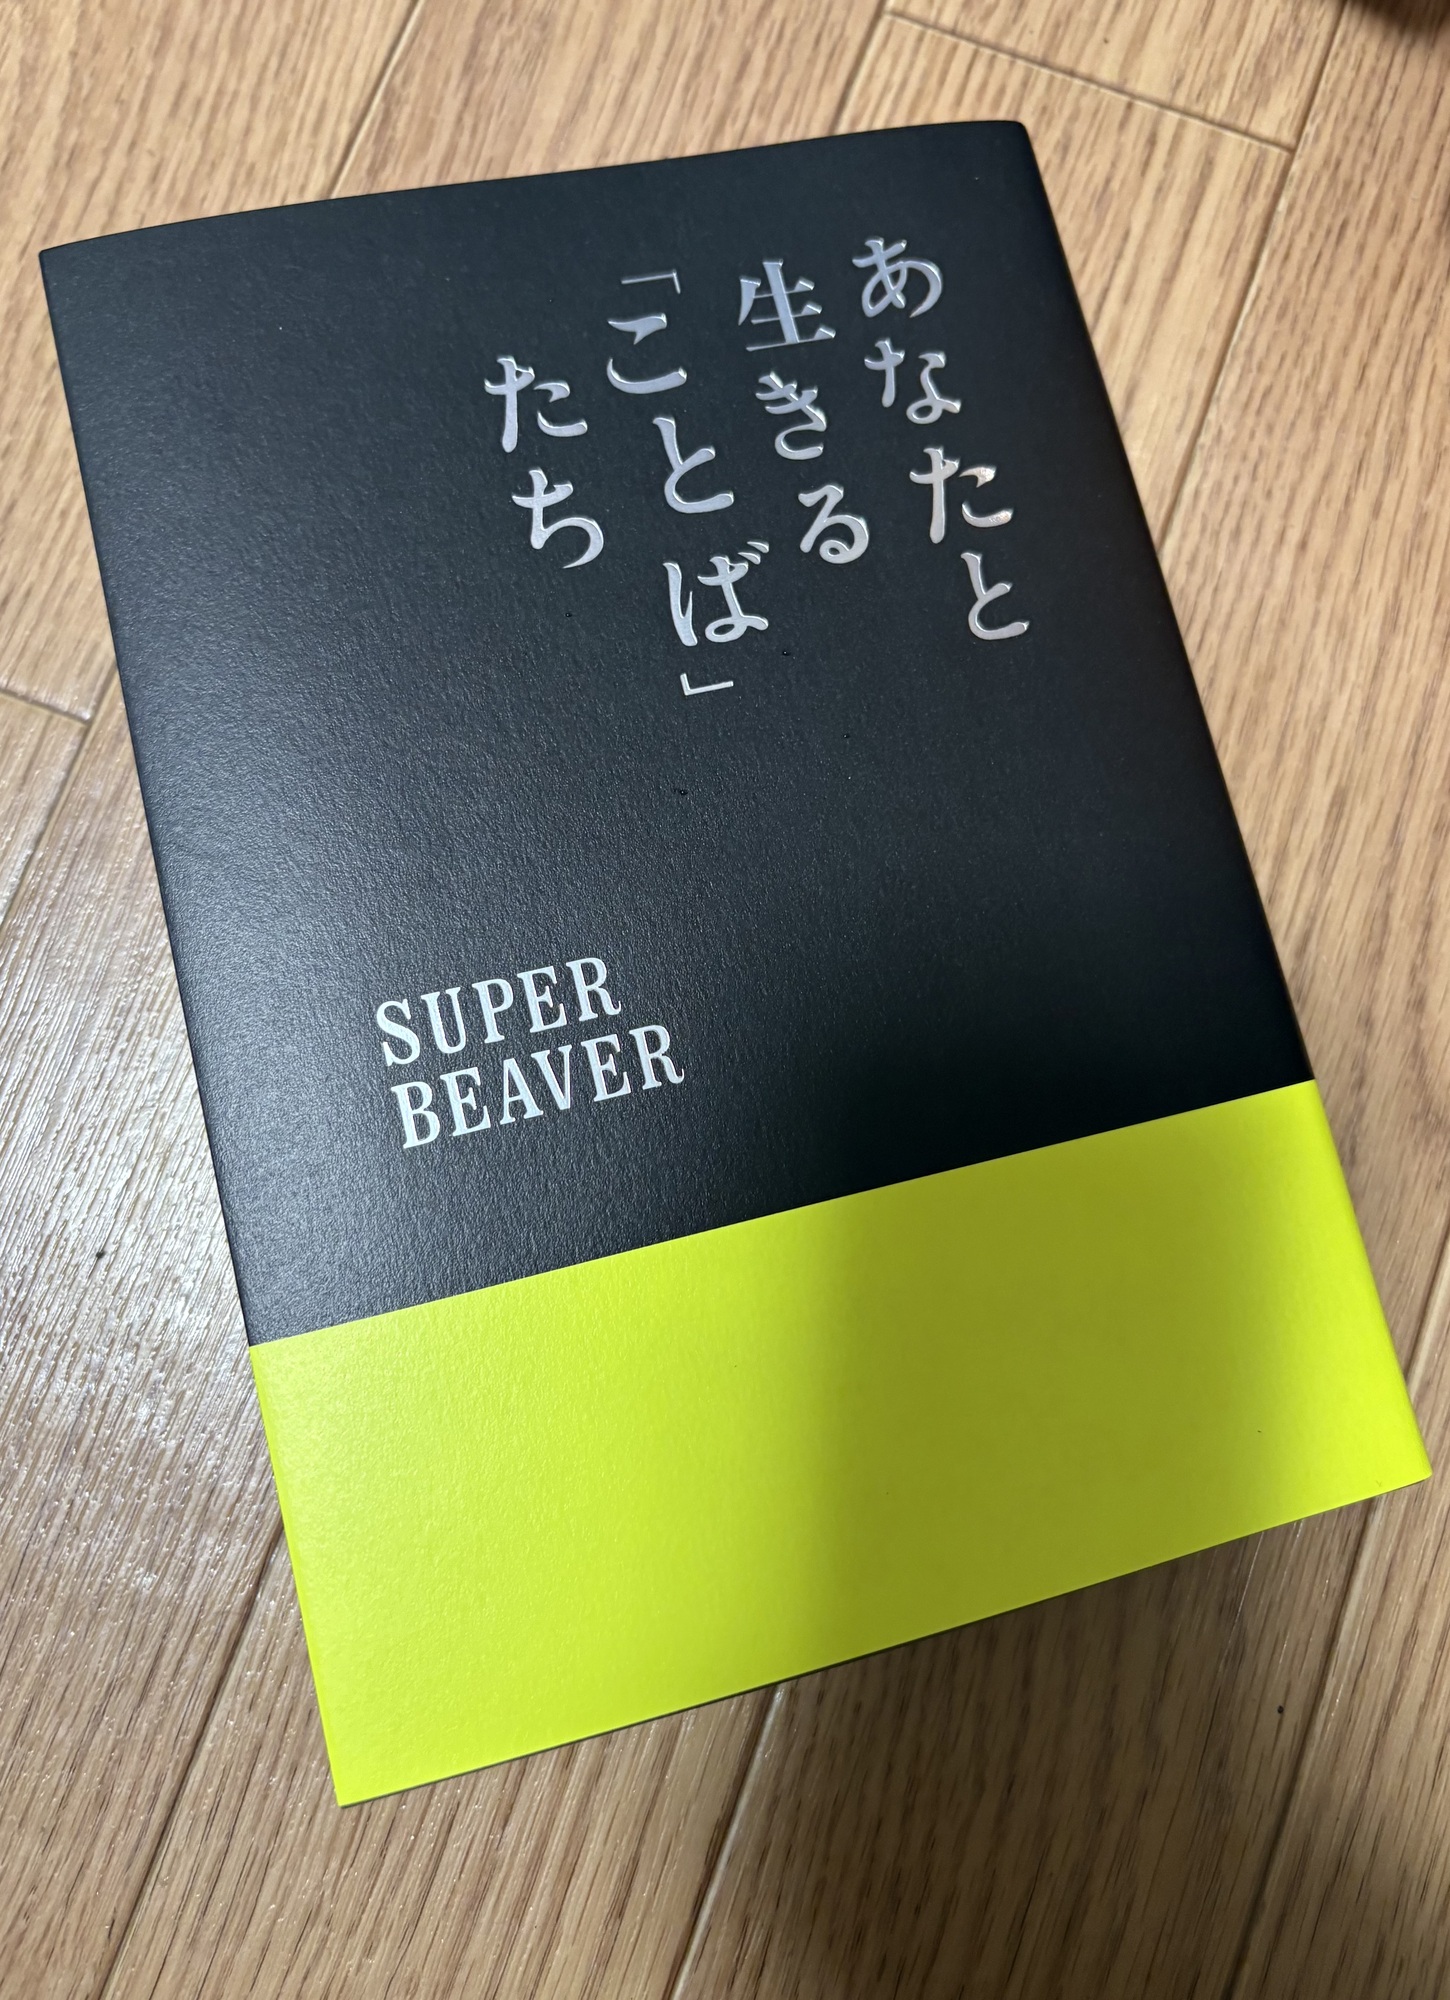 あなたと
生きる
「ことば」
たち
SUPER
BEAVER